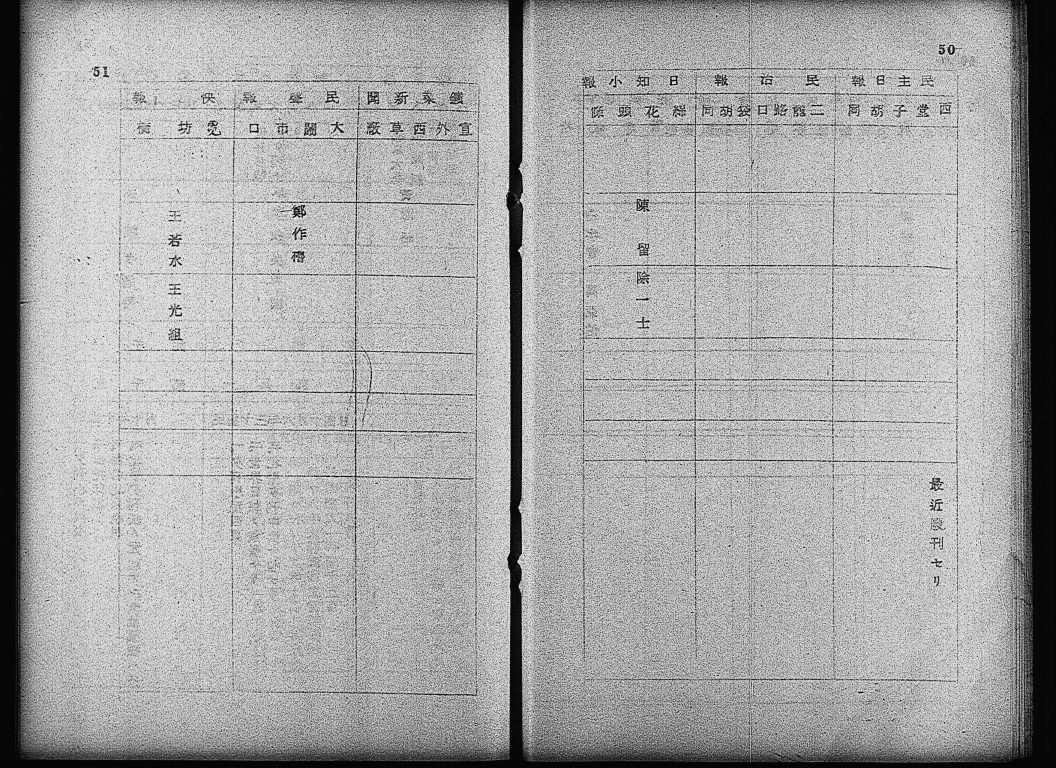 50
民主日報
西堂子胡同
最近廢刊セリ
民治報
二龍路口袋胡同
日知小報
棉花頭條
陳留
除一士
51
新聞
宣外西草廠
民聲報
大市口
鄭作
快報
坊橋
王若水
王光組